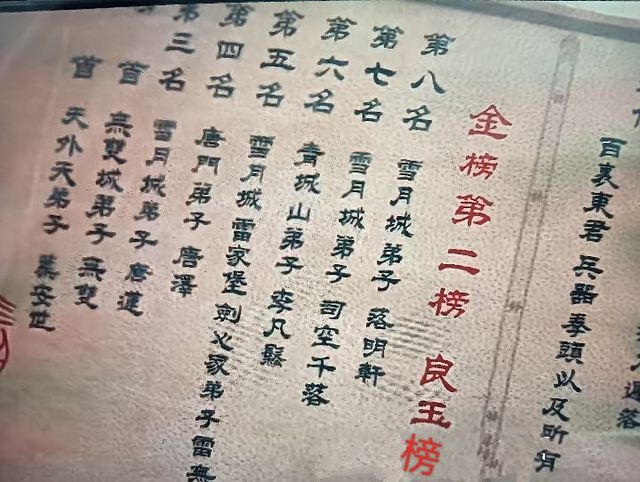 百裏東君 兵器拳頭以及所有
金榜第二榜 良玉榜
第八名 雪月城弟子 落明軒
第七名 雪月城弟子 司空千落
第六名 青城山弟子 李凡鬆
第五名 雪月城 雷家堡 劍心冢弟子 雷無
第四名 唐門弟子 唐澤
第三名 雪月城弟子 唐蓮
首 無雙城弟子 無雙
首 天外天弟子 葉安世